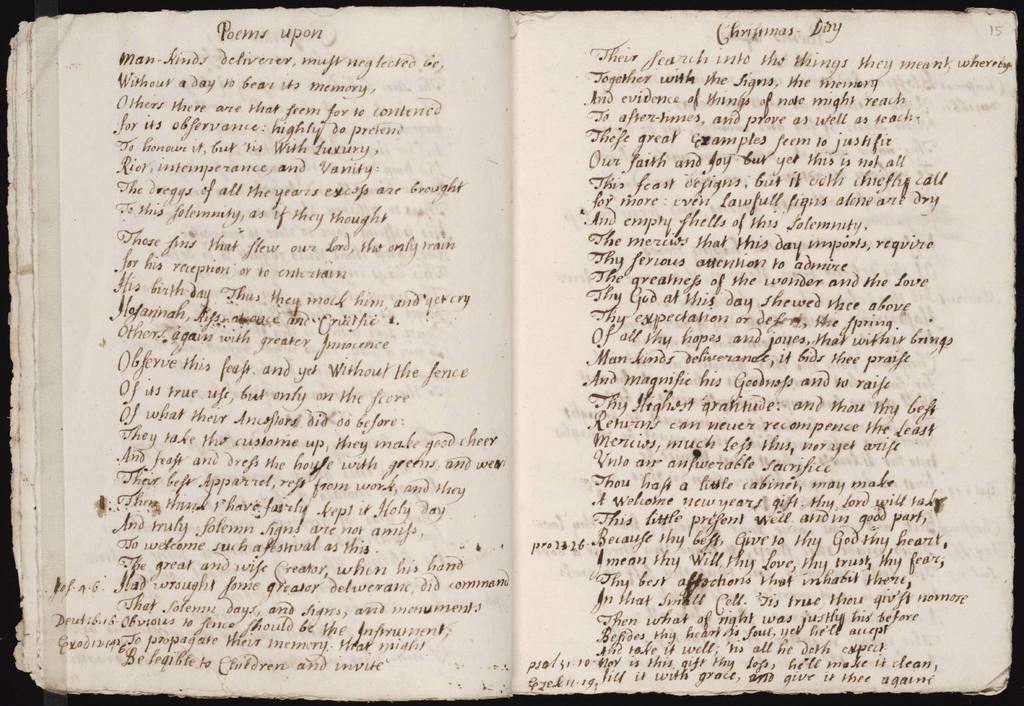 Poems upon
Man-kinds deliverer, must neglected be,
Without a day to bear its memory,
Others there are that seem for to contend
for its observance: highly do pretend
To honour it, but 'tis With Luxury,
Riot, intemperance, and Vanity:
The dreggs of all the years excess are brought
To this solemnity, as if they thought
Those sins that slew our Lord, the only train
for his reception or to entertain
His birth-day. Thus they mock him, and yet cry
Hosannah, Kiss, at once and Crucifie.
Others again with greater Innocence
Observe this feast, and yet Without the sence
Of its true use, but only on the score
Of what their Ancestors did do before:
They take the custome up, they make good cheer
And feast and dress the house with greens, and wear
Their best Apparrel, rest from work, and they
Then think t'have fairly kept it Holy day
And truly solemn signs are not amiss,
To welcome such a festival as this.
The great and wise Creator, when his hand
Jos. 4-6. Had wrought some greator deliverance, did command
That solemn days, and signs, and monuments
Deut 16-16 Obvious to sence should be the Instrument,
Exod 12-14 To propagate their memory: that might
Be legible to Children and invite
Christmas-Day
15
Their search into the things they meant, whereby
Together with the signs, the memory
And evidence of things of note might reach
To after-times, and prove as well as teach-
These great Examples seem to justifie
Our faith and Joy but yet this is not all
This feast designs, but it doth chiefly call
for more: even Lawfull signs alone are dry
And empty shells of this Solemnity.
The mercies that this day imports, require
Thy serious attention to admire
The greatness of the wonder and the Love
Thy God at this day shewed thee above
Thy expectation or desert, the spring
Of all thy hopes and joyes, that with it brings
Man-kinds deliverance, it bids thee praise
And magnifie his Goodness and to raise
Thy Highest gratitude: and thou thy best
Returns can never recompence the Least
Mercies, much less this, nor yet arise
Unto an answerable Sacrifice
Thou hast a little cabinet, may make
A Welcome new years gift: thy Lord will take
This little present well and in good part,
pro 23-26 Because thy best, Give to thy God thy heart,
I mean thy Will, thy Love, thy trust, thy fear,
Thy best affections that inhabit there,
In that small Cell. 'Tis true, thou giv'st no more
Then what of right was justly his before
Besides thy heart is foul, yet he'll accept
And take it well, 'tis all he doth expect
psal 51-10 Nor is this gift thy loss, he'll make it clean,
Ezek 11-19, fill it with grace, and give it thee againe